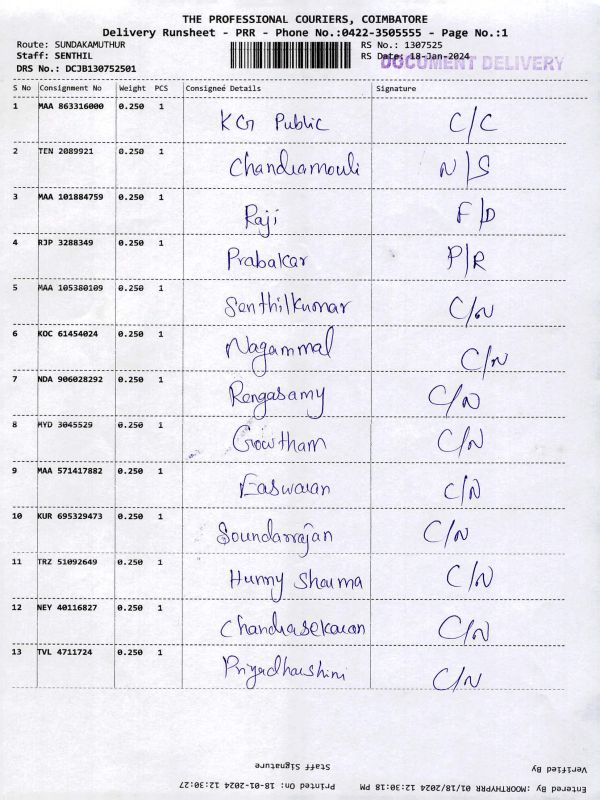 THE PROFESSIONAL COURIERS, COIMBATORE
Delivery Runsheet - PRR - Phone No.:0422-3505555 - Page No.:1
Route: SUNDAKAMUTHUR RS No.: 1307525
Staff: SENTHIL RS Date: 18-Jan-2024
DOCUMENT DELIVERY
DRS No.: DCJB130752501
S No Consignment No Weight PCS Consignee Details Signature
1 MAA 863316000 0.250 1 KG Public C/C
2 TEN 2089921 0.250 1 Chandramouli N/S
3 MAA 101884759 0.250 1 Raji F/D
4 RJP 3288349 0.250 1 Prabakar P/R
5 MAA 105380109 0.250 1 Senthilkumar C/N
6 KOC 61454024 0.250 1 Nagammal C/N
7 NDA 906028292 0.250 1 Rengasamy C/N
8 MYD 3045529 0.250 1 Gowtham C/N
9 MAA 571417882 0.250 1 Easwaran C/N
10 KUR 695329473 0.250 1 Soundarrajan C/N
11 TRZ 51092649 0.250 1 Hunny Sharma C/N
12 NEY 40116827 0.250 1 Chandrasekaran C/N
13 TVL 4711724 0.250 1 Priyadharshini C/N
Staff Signature Verified By
Printed On: 18-01-2024 12:30:27 Entered By :MOORTHYPRR 01/18/2024 12:30:18 PM